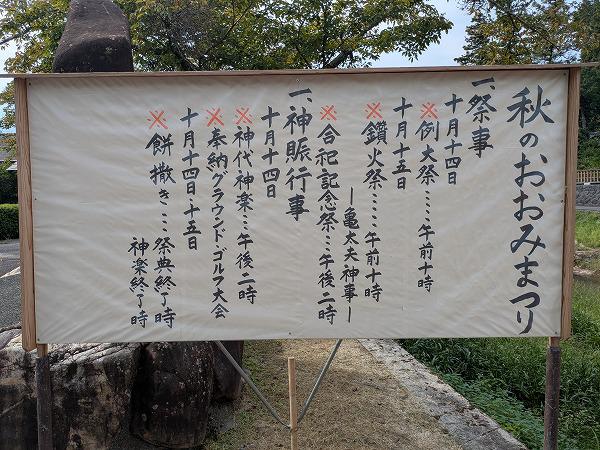 秋のおおみまつり
一、祭事
十月十四日
※例大祭‥‥午前十時
十月十五日
※鑽火祭‥‥午前十時
―亀太夫神事―
※合祀記念祭‥午後二時
一、神賑行事
十月十四日
※神代神楽‥午後二時
※奉納グラウンド・ゴルフ大会
十月十四日・十五日
※餅撒き‥‥祭典終了時
神楽終了時